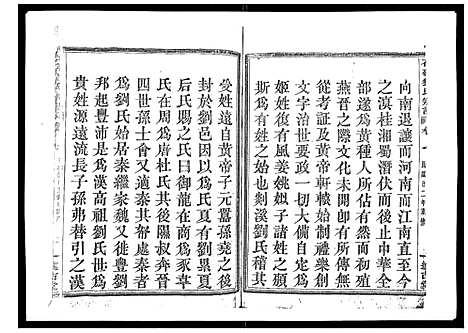 向南退讓而河南而江南直至今
之滇桂湘蜀潛伏而後止中央
部遂爲黃種人所佔有然當時
燕晋之際文化未開卽有所傳無
從考証及黃帝軒轅始制禮樂創
文字治世一切大備自定姓
姬姓復有風姜姚姒子諸姓之領
斯爲有姓之始剡溪劉氏稽其
受姓遠自黃帝子元囂孫堯之後
於劉邑因以爲氏夏有劉累夏
后氏賜之曰氏御龍在商爲豕韋
氏在周爲唐杜氏其後隰叔奔晉
四世孫士會又適秦其帑處秦者
爲劉氏始居秦繼家魏又徙豐劉
邦起豐沛是爲漢高祖劉氏世爲
貴姓源遠流長子孫弗替引之漢